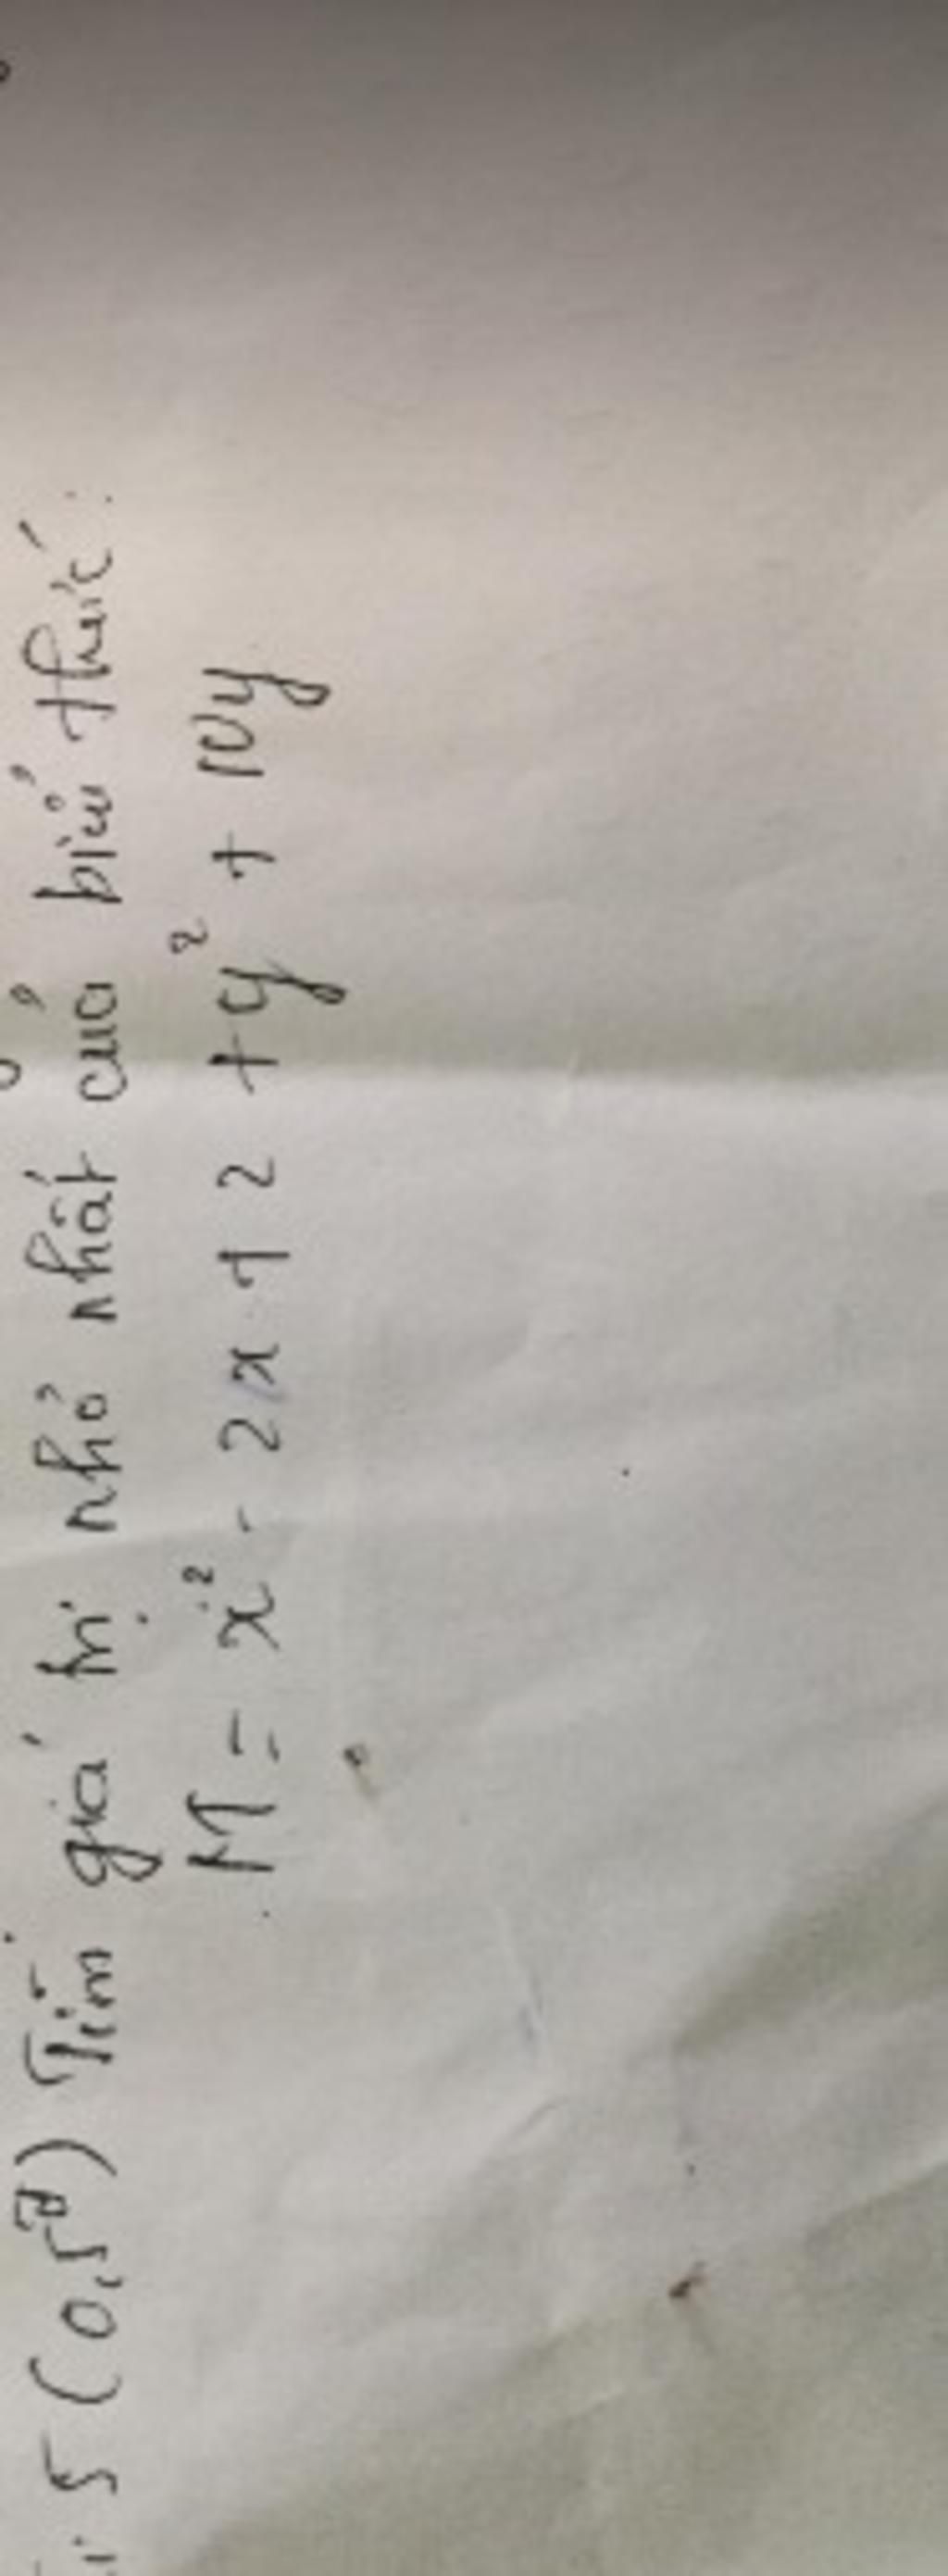 5 (0,5đ) Tìm giá trị nhỏ nhất của biểu thức:
M = x² - 2x + 2 + y² + 10y